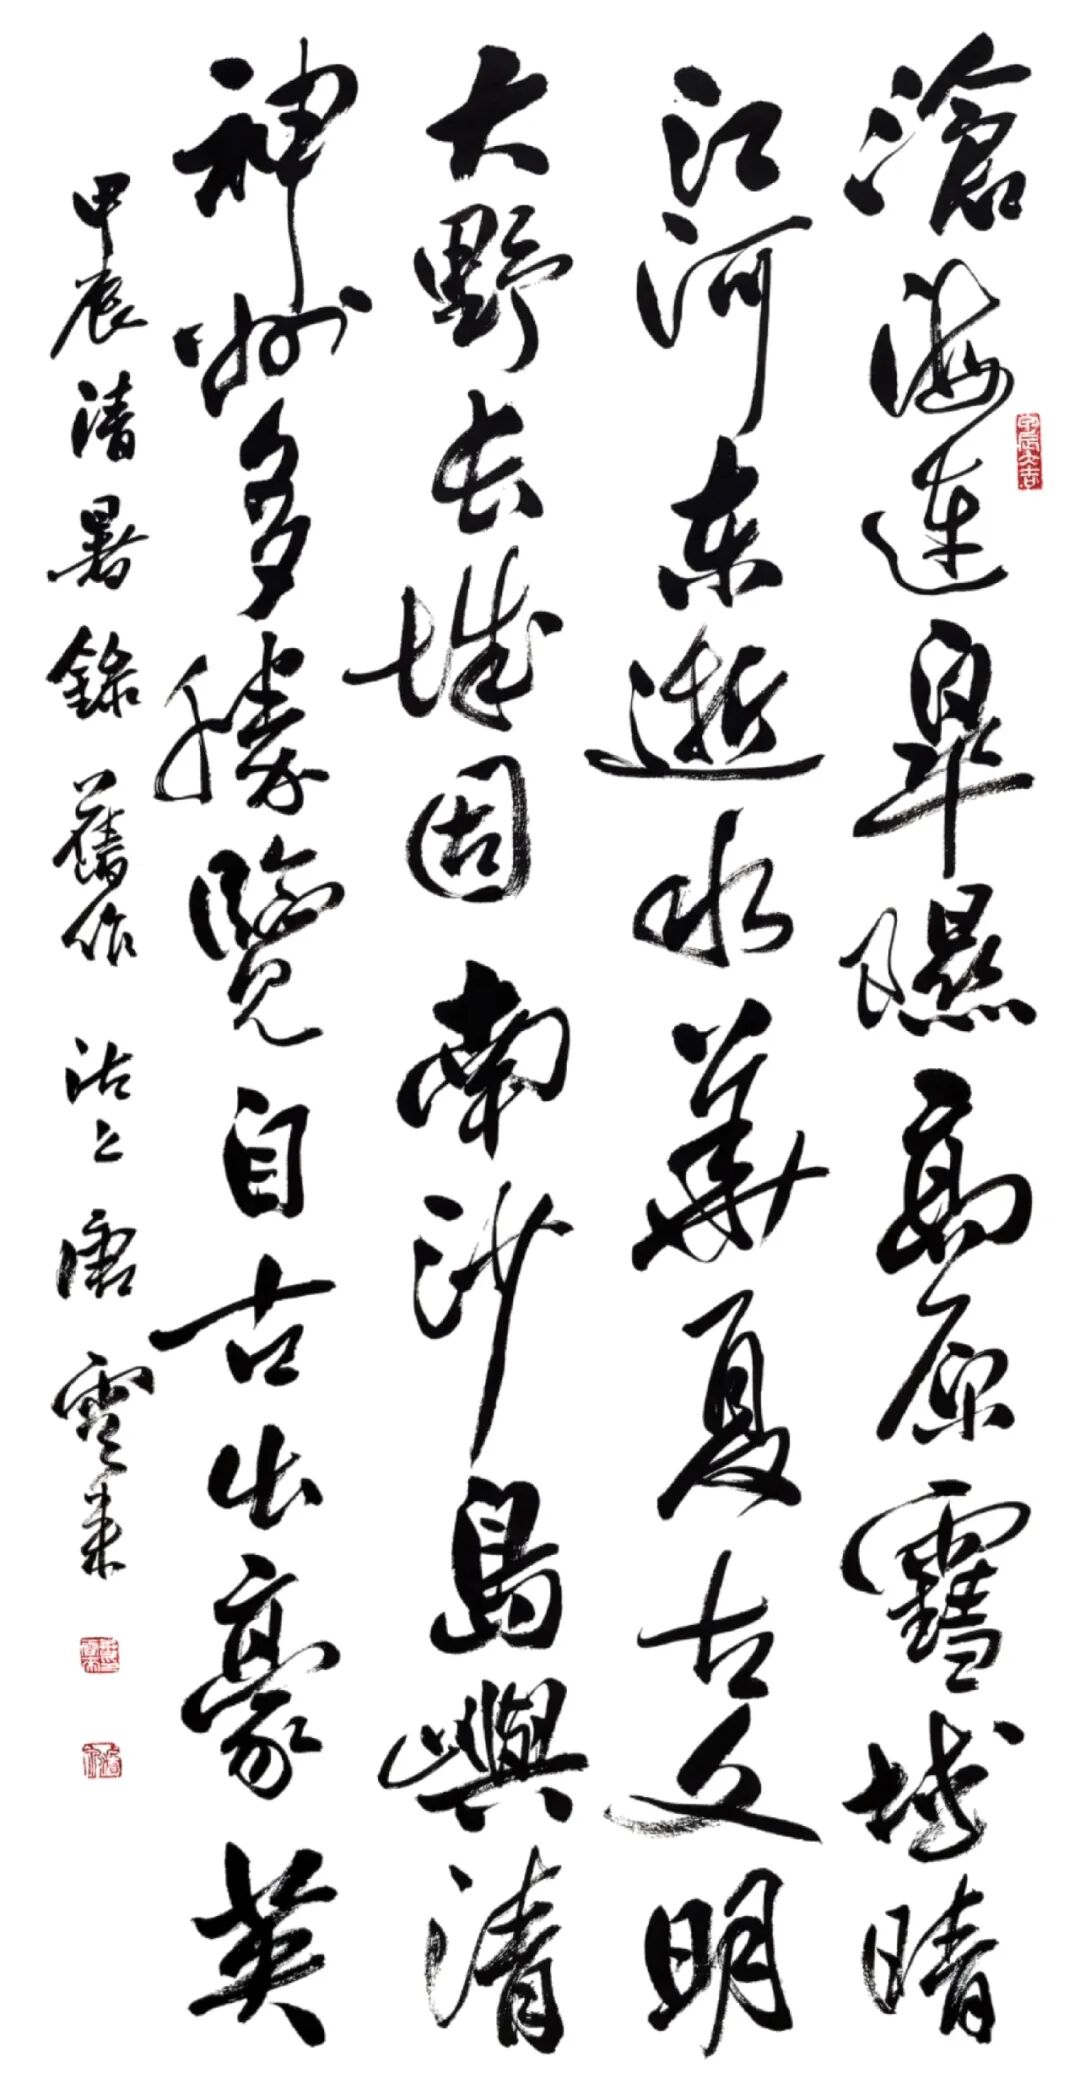 滄海連皐隰高原靈域晴
江河東逝水華夏古文明
大野長城固南沙島嶼清
神州多勝覽自古出豪英
甲辰清暑錄舊作沽上唐雲來